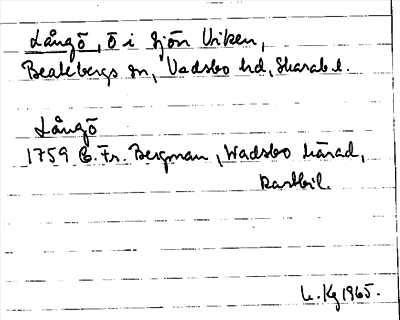 Långö, ö i sjön Viken,
Beatebergs sn, Vadsbo hd, Skarab l.
Långö
1759 C. Fr. Bergman, Wadsbo härad,
kartbil.
L. Kg 1965.